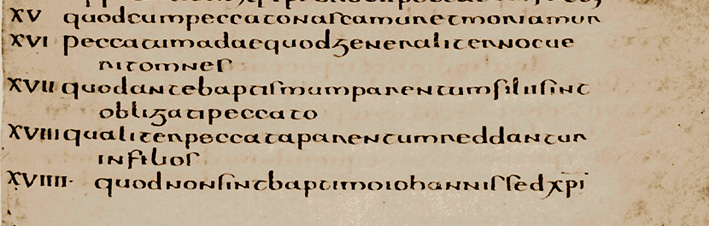 XV quodcumpeccatonascamuretmoriamur
XVI peccatumadaequodgeneraliternocue
ritomnes
XVII quodantebaptismumparentumfiliisint
obligatipeccato
XVIII qualiterpeccataparentumreddantur
infilios
XVIIII quodnonsintbaptimoiohannissedxpi